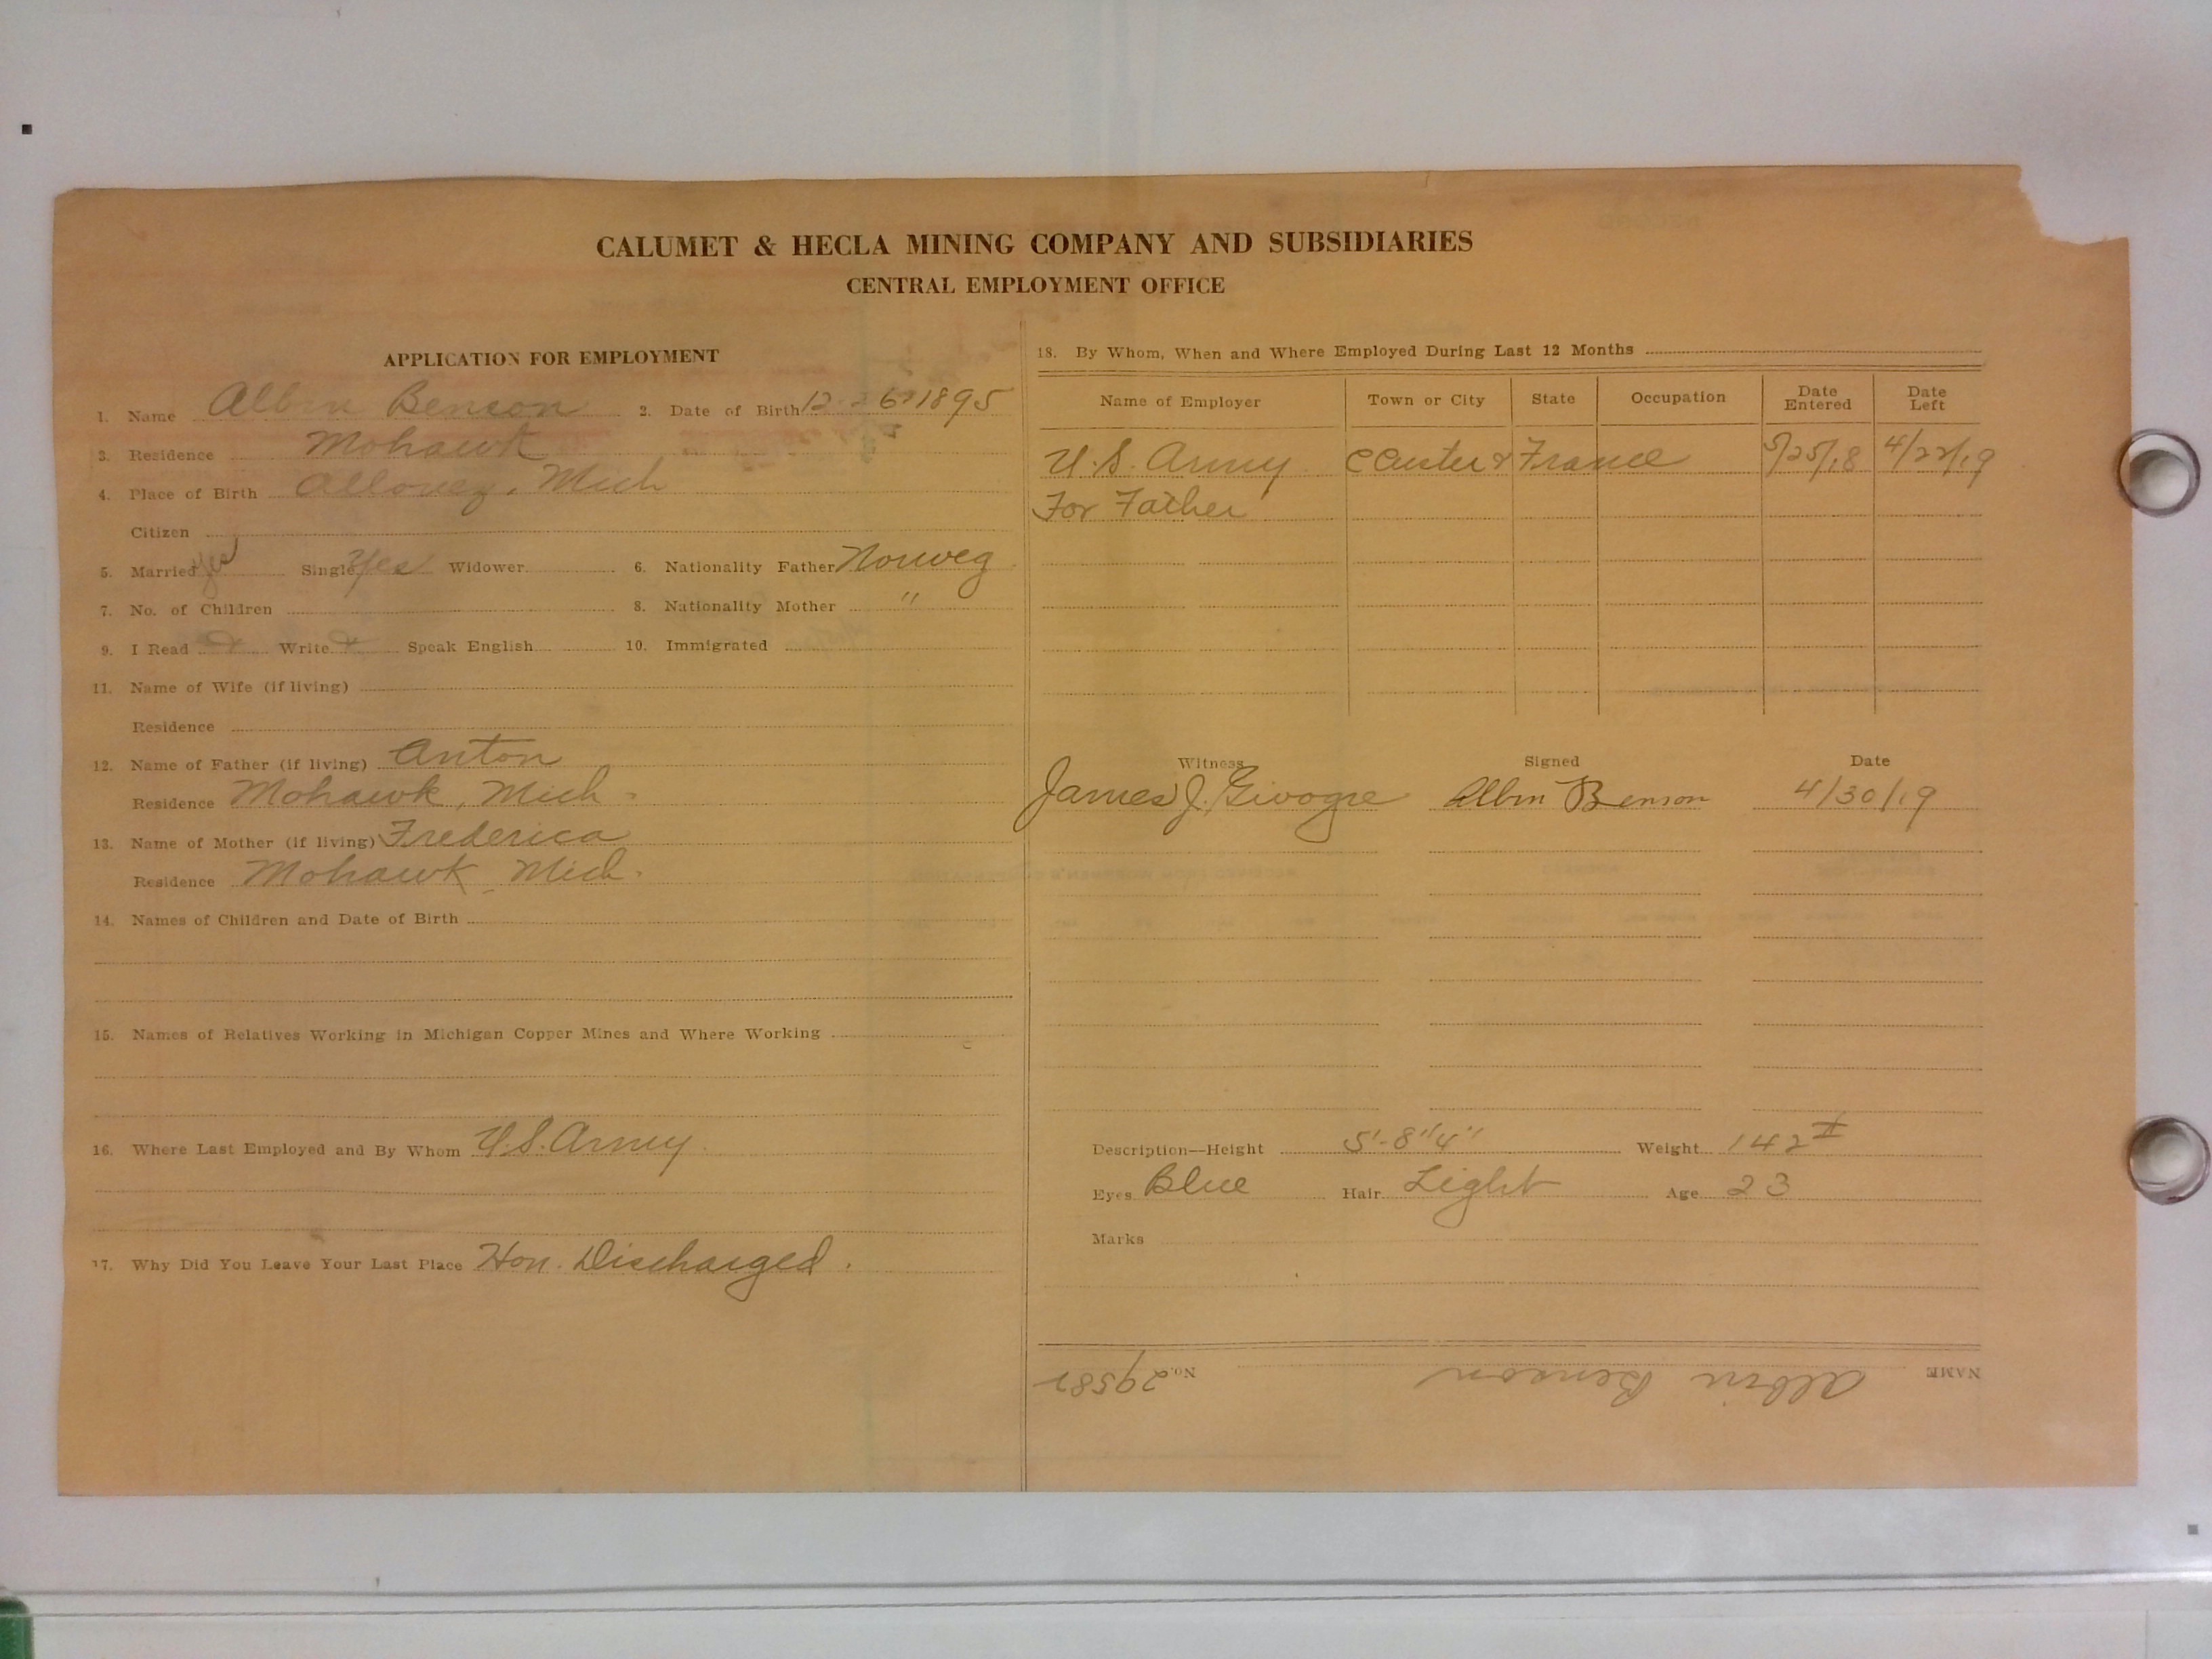 CALUMET & HECLA MINING COMPANY AND SUBSIDIARIES
CENTRAL EMPLOYMENT OFFICE
APPLICATION FOR EMPLOYMENT
1. Name Albin Benson 2. Date of Birth 12-6-1895
3. Residence Mohawk
4. Place of Birth Allouez, Mich
Citizen
5. Married yes Single Yes Widower 6. Nationality Father Norweg
7. No. of Children 8. Nationality Mother "
9. I Read Write Speak English 10. Immigrated
11. Name of Wife (if living)
Residence
12. Name of Father (if living) Anton
Residence Mohawk, Mich
13. Name of Mother (if living) Frederica
Residence Mohawk, Mich.
14. Names of Children and Date of Birth
15. Names of Relatives Working in Michigan Copper Mines and Where Working
16. Where Last Employed and By Whom U.S. Army.
17. Why Did You Leave Your Last Place Hon. Discharged.
18. By Whom, When and Where Employed During Last 12 Months
Name of Employer Town or City State Occupation Date Entered Date Left
U.S. Army C Custer & France 5/25/18 4/22/19
For Father
Witness Signed Date
James J. Albin Benson 4/30/19
Description—Height 5'-8"1/4" Weight 142
Eyes Blue Hair Light Age 23
Marks
NAME Albin Benson No. 29582